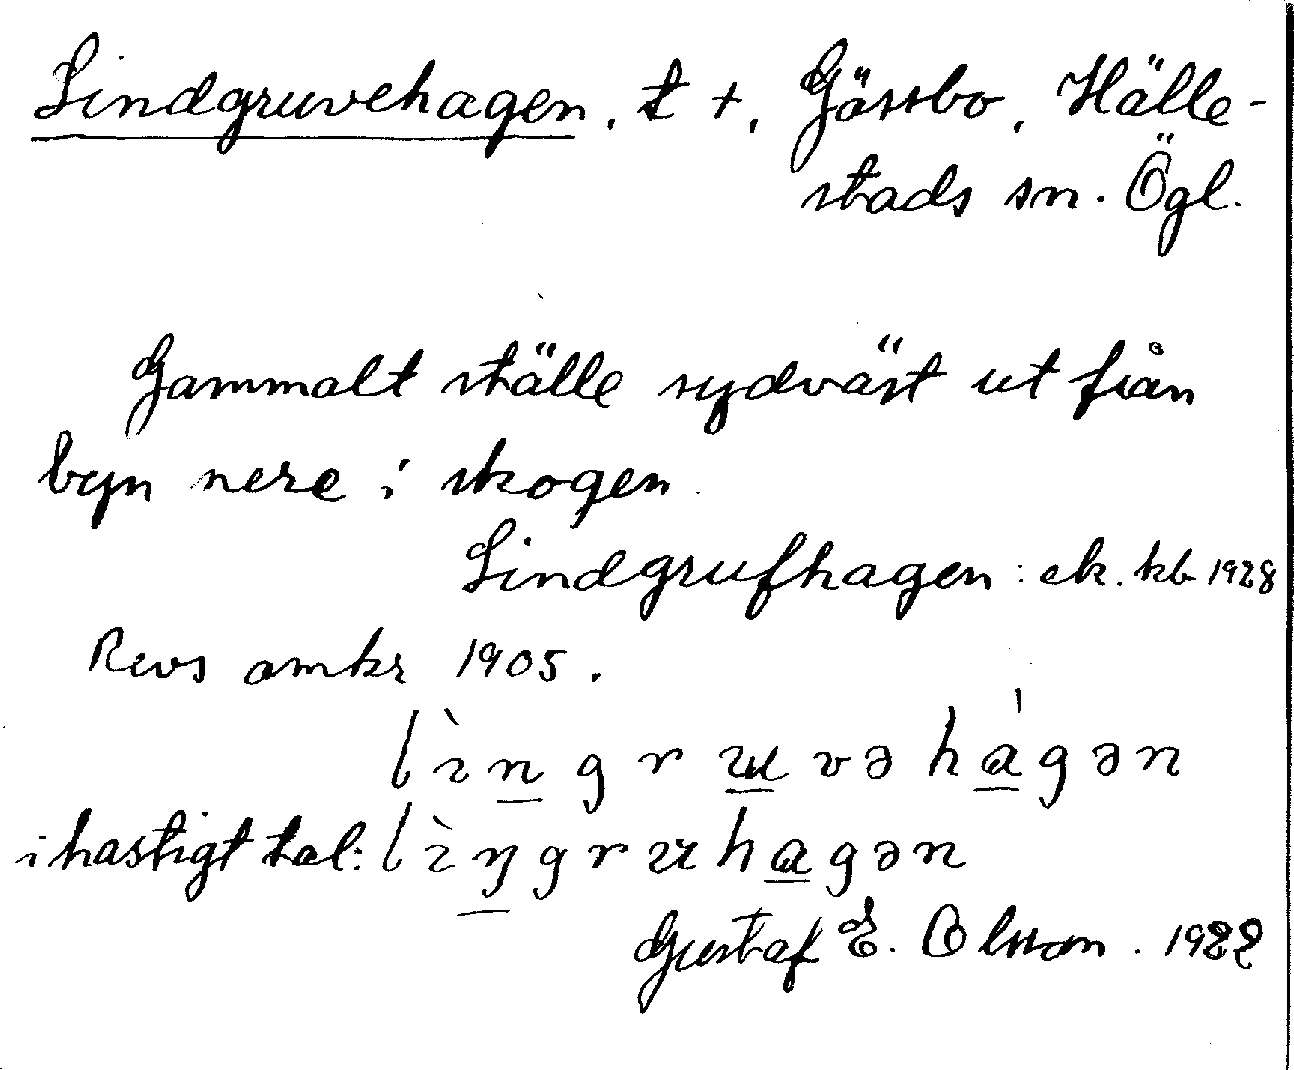 Lindgruvehagen, t +, Gässbo, Hälle-
stads sn. Ögl.
Gammalt ställe sydväst ut från
byn nere i skogen.
Lindgrufhagen: ek. kb 1928
Revs omkr 1905.
lìngruvəhágən
i hastigt tal: lìŋgruhagən
Gustaf E. Olsson. 1922